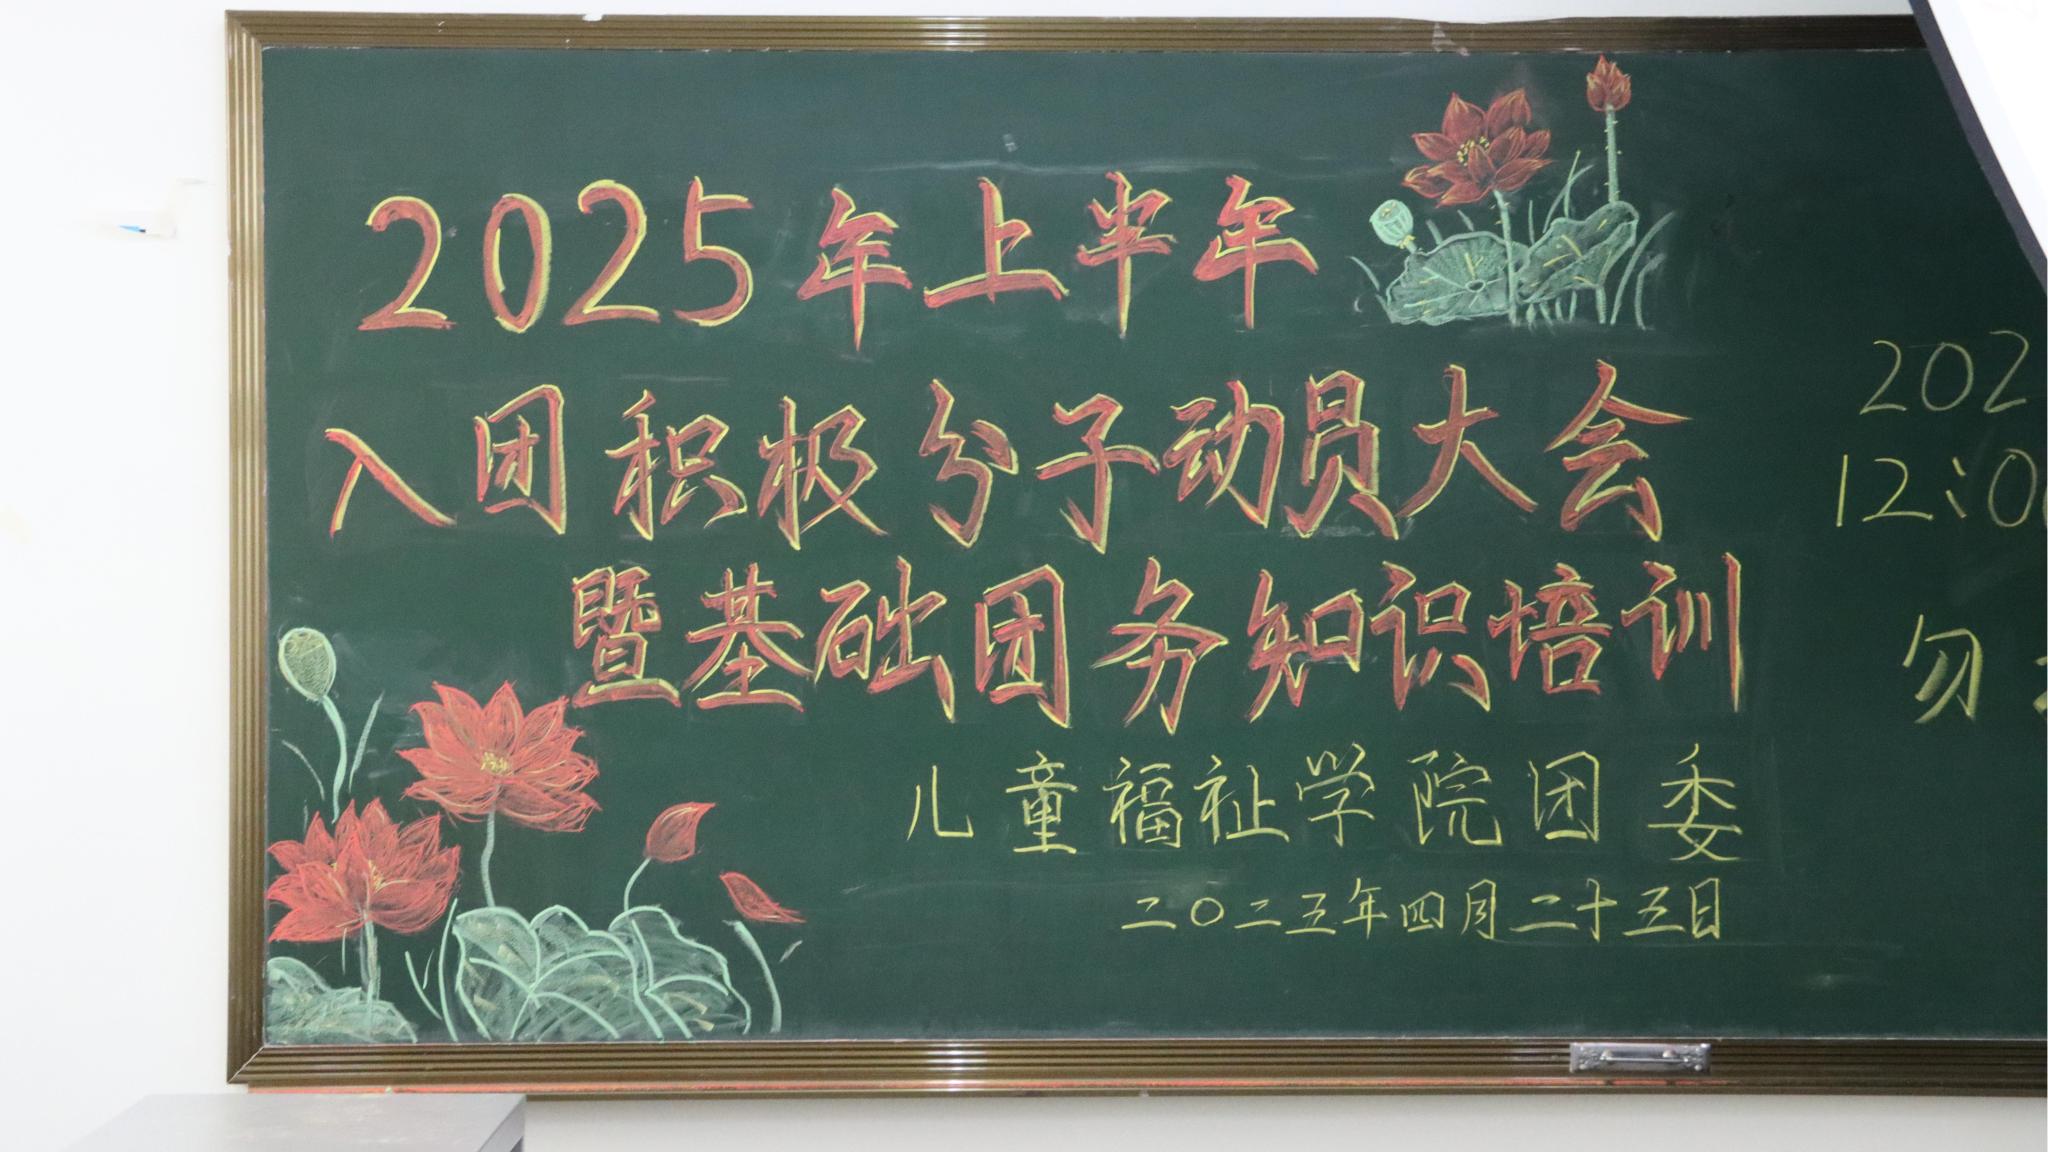 2025年上半年
入团积极分子动员大会
暨基础团务知识培训
儿童福祉学院团委
二〇二五年四月二十五日
202
12:0
勿